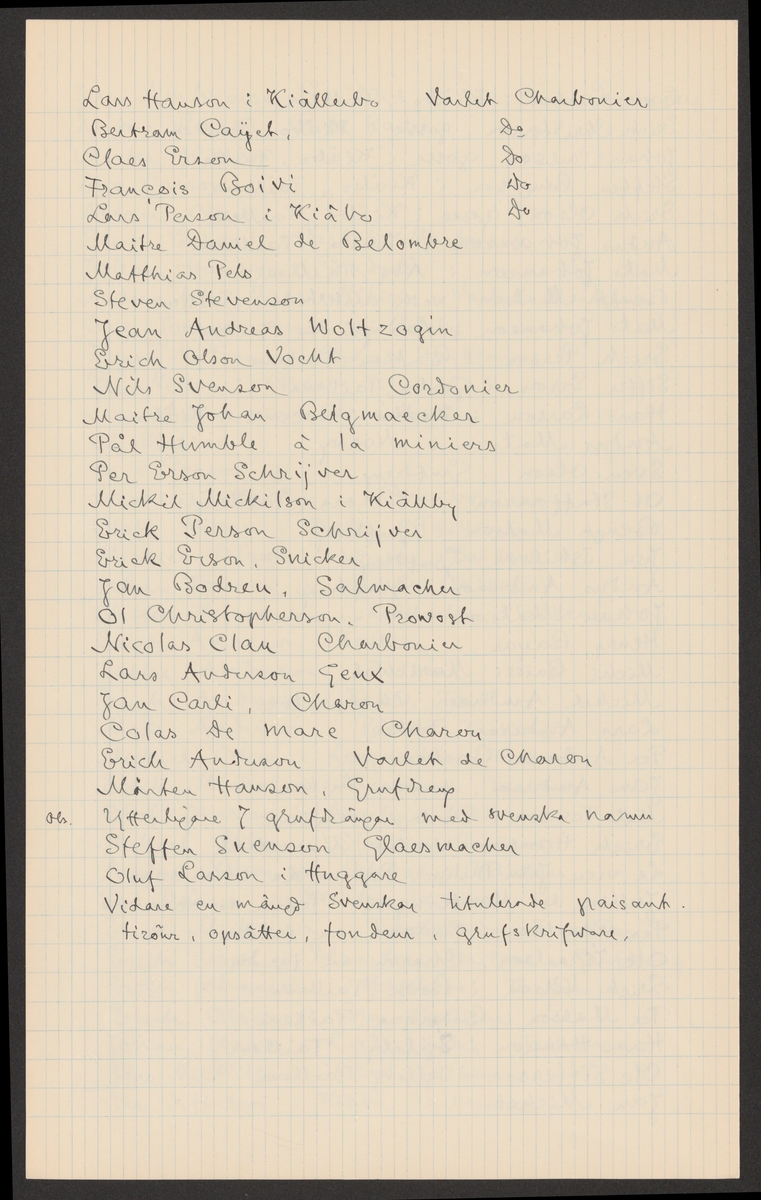 Lars Hanson i Kiällerbo Varlet Charbonier
Bertram Caÿet, Do
Claes Erson Do
François Boivi Do
Lars Person i Kiäbo Do
Maitre Daniel de Belombre
Matthias Pels
Steven Stevenson
Jean Andreas Woltzogin
Erich Olson Vocht
Nils Svenson Cordonier
Maitre Johan Belgmaecker
Pål Humble à la miniers
Per Erson Schrijver
Mickil Mickilson i Kiällby
Erick Person Schrijver
Erick Erson, Snicker
Jan Bodreu, Salmacher
Ol Christopherson, Prowost
Nicolas Clau Charbonier
Lars Anderson Geux
Jan Carli, Charon
Colas de mare Charon
Erich Anderson Varlet de Charon
Mårten Hanson, Grufdreng
Obs. Ytterligare 7 grufdrängar med svenska namn
Steffen Suenson Glaesmacher
Oluf Larson i Huggare
Vidare en mängd Svenskar titulerade paisant.
tizöur, opsätter, fondeur, grufskrifware,